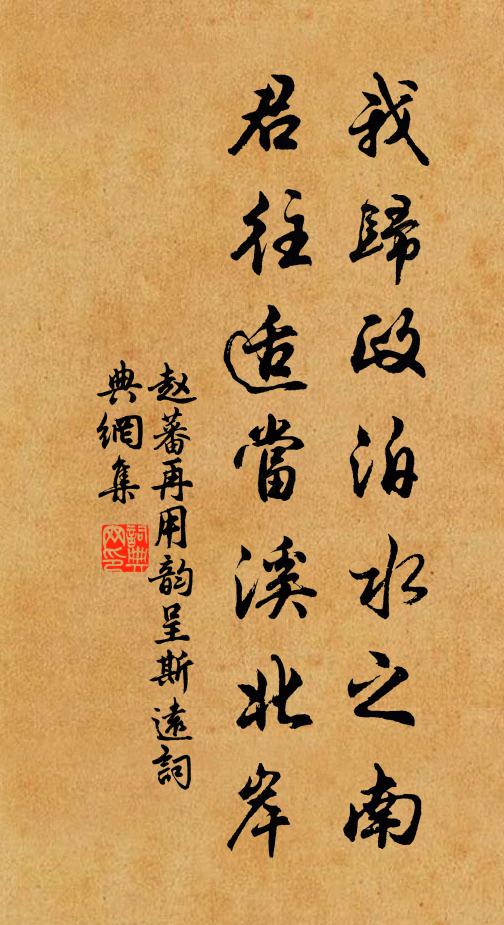 我歸政泊水之南
君往适當溪北岸
赵蕃再用韵呈斯遠詞
典網集
詞典
网印